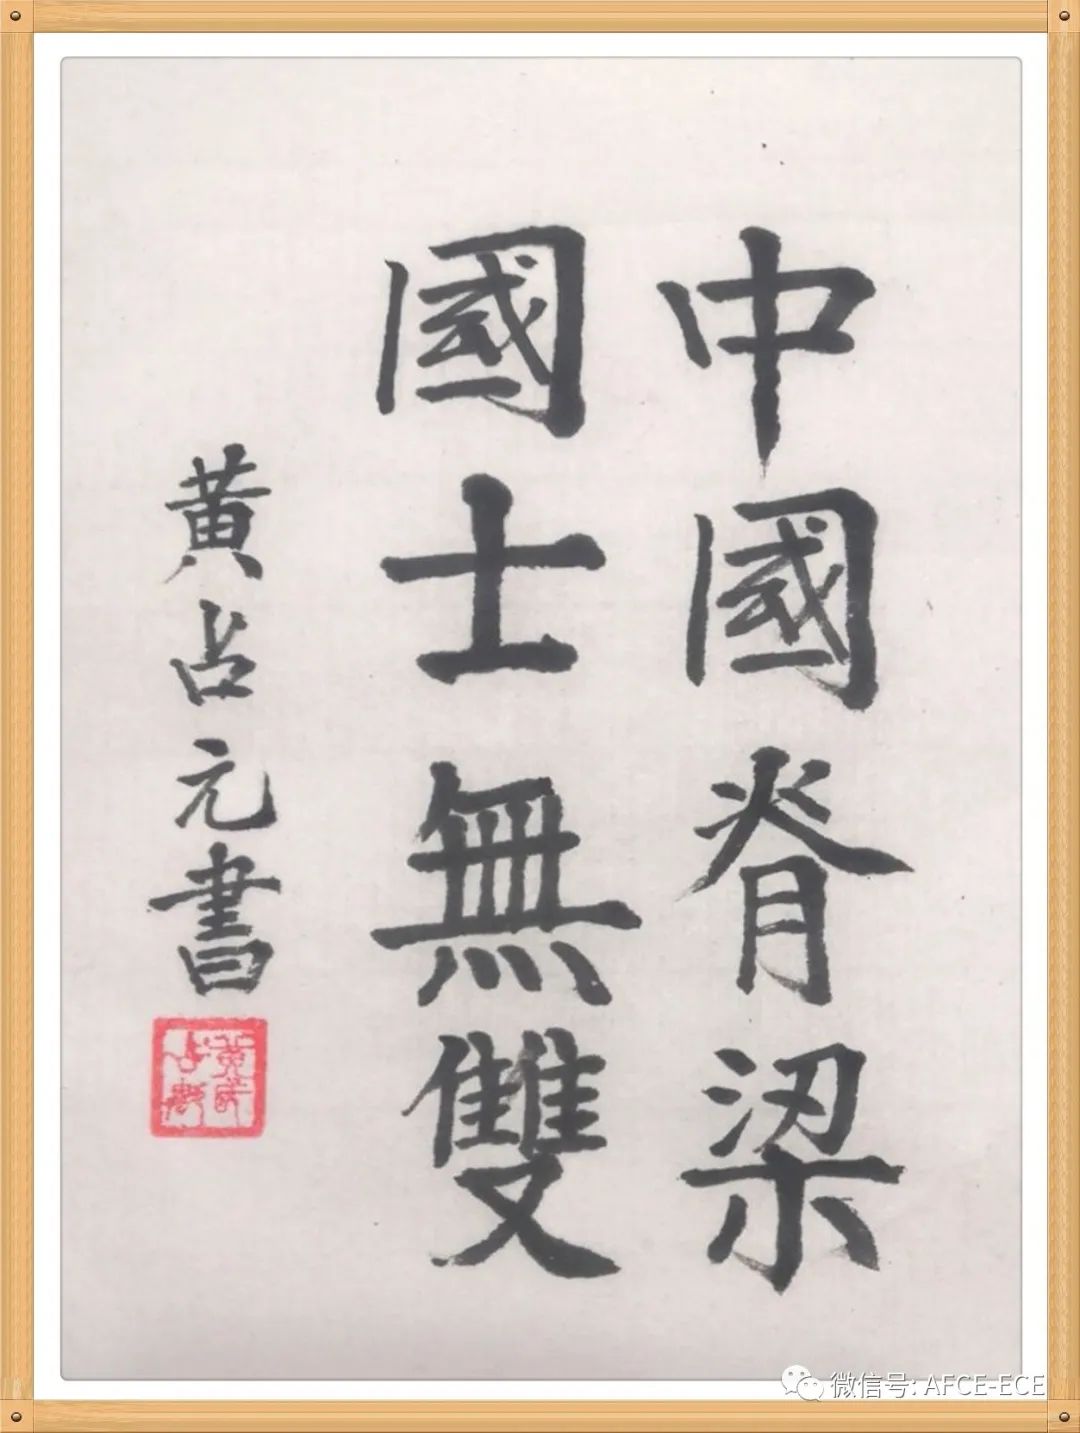 中國脊梁
國士無雙
黃占元書
微信号: AFCE-ECE